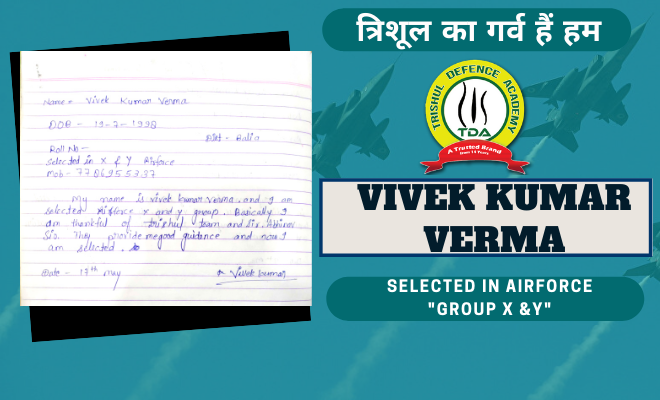 त्रिशूल का गर्व हैं हम
TRISHUL DEFENCE ACADEMY
TDA
A Trusted Brand
from 14 Years
VIVEK KUMAR
VERMA
SELECTED IN AIRFORCE
"GROUP X &Y"
Name = Vivek Kumar Verma
DOB - 19-7-1998
Dist - Ballia
Roll No -
Selected in X & Y Airforce
Mob - 7786955337
My name is vivek kumar verma. and I am
selected Airforce x and y group. Basically I
am thankful of trishul team and Sir. Abhinov
Sir. They provide me good guidance and now I
am selected.
Date - 17th may
Vivek kumar